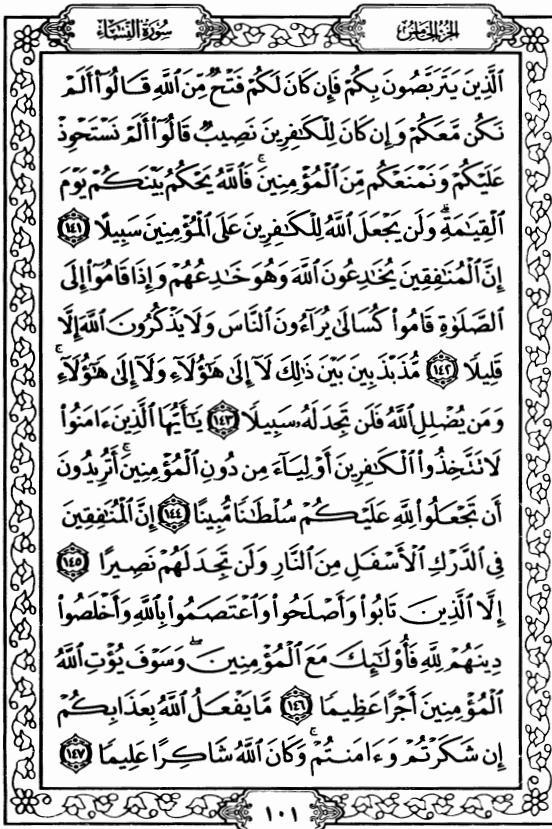 سُورَةُ النِّسَاءِ
الجُزْءُ الخَامِسُ
الَّذِينَ يَتَرَبَّصُونَ بِكُمْ فَإِن كَانَ لَكُمْ فَتْحٌ مِّنَ اللَّهِ قَالُوٓا۟ أَلَمْ
نَكُن مَّعَكُمْ وَإِن كَانَ لِلْكَٰفِرِينَ نَصِيبٌ قَالُوٓا۟ أَلَمْ نَسْتَحْوِذْ
عَلَيْكُمْ وَنَمْنَعْكُم مِّنَ الْمُؤْمِنِينَ ۚ فَاللَّهُ يَحْكُمُ بَيْنَكُمْ يَوْمَ
الْقِيَٰمَةِ ۗ وَلَن يَجْعَلَ اللَّهُ لِلْكَٰفِرِينَ عَلَى الْمُؤْمِنِينَ سَبِيلًا ١٤١
إِنَّ الْمُنَٰفِقِينَ يُخَٰدِعُونَ اللَّهَ وَهُوَ خَٰدِعُهُمْ وَإِذَا قَامُوٓا۟ إِلَى
الصَّلَوٰةِ قَامُوا۟ كُسَالَىٰ يُرَآءُونَ النَّاسَ وَلَا يَذْكُرُونَ اللَّهَ إِلَّا
قَلِيلًا ١٤٢ مُّذَبْذَبِينَ بَيْنَ ذَٰلِكَ لَآ إِلَىٰ هَٰٓؤُلَآءِ وَلَآ إِلَىٰ هَٰٓؤُلَآءِ ۚ
وَمَن يُضْلِلِ اللَّهُ فَلَن تَجِدَ لَهُۥ سَبِيلًا ١٤٣ يَٰٓأَيُّهَا الَّذِينَ ءَامَنُوا۟
لَا تَتَّخِذُوا۟ الْكَٰفِرِينَ أَوْلِيَآءَ مِن دُونِ الْمُؤْمِنِينَ ۚ أَتُرِيدُونَ
أَن تَجْعَلُوا۟ لِلَّهِ عَلَيْكُمْ سُلْطَٰنًا مُّبِينًا ١٤٤ إِنَّ الْمُنَٰفِقِينَ
فِى الدَّرْكِ الْأَسْفَلِ مِنَ النَّارِ وَلَن تَجِدَ لَهُمْ نَصِيرًا ١٤٥
إِلَّا الَّذِينَ تَابُوا۟ وَأَصْلَحُوا۟ وَاعْتَصَمُوا۟ بِاللَّهِ وَأَخْلَصُوا۟
دِينَهُمْ لِلَّهِ فَأُو۟لَٰٓئِكَ مَعَ الْمُؤْمِنِينَ ۖ وَسَوْفَ يُؤْتِ اللَّهُ
الْمُؤْمِنِينَ أَجْرًا عَظِيمًا ١٤٦ مَّا يَفْعَلُ اللَّهُ بِعَذَابِكُمْ
إِن شَكَرْتُمْ وَءَامَنتُمْ ۚ وَكَانَ اللَّهُ شَاكِرًا عَلِيمًا ١٤٧
١٠١